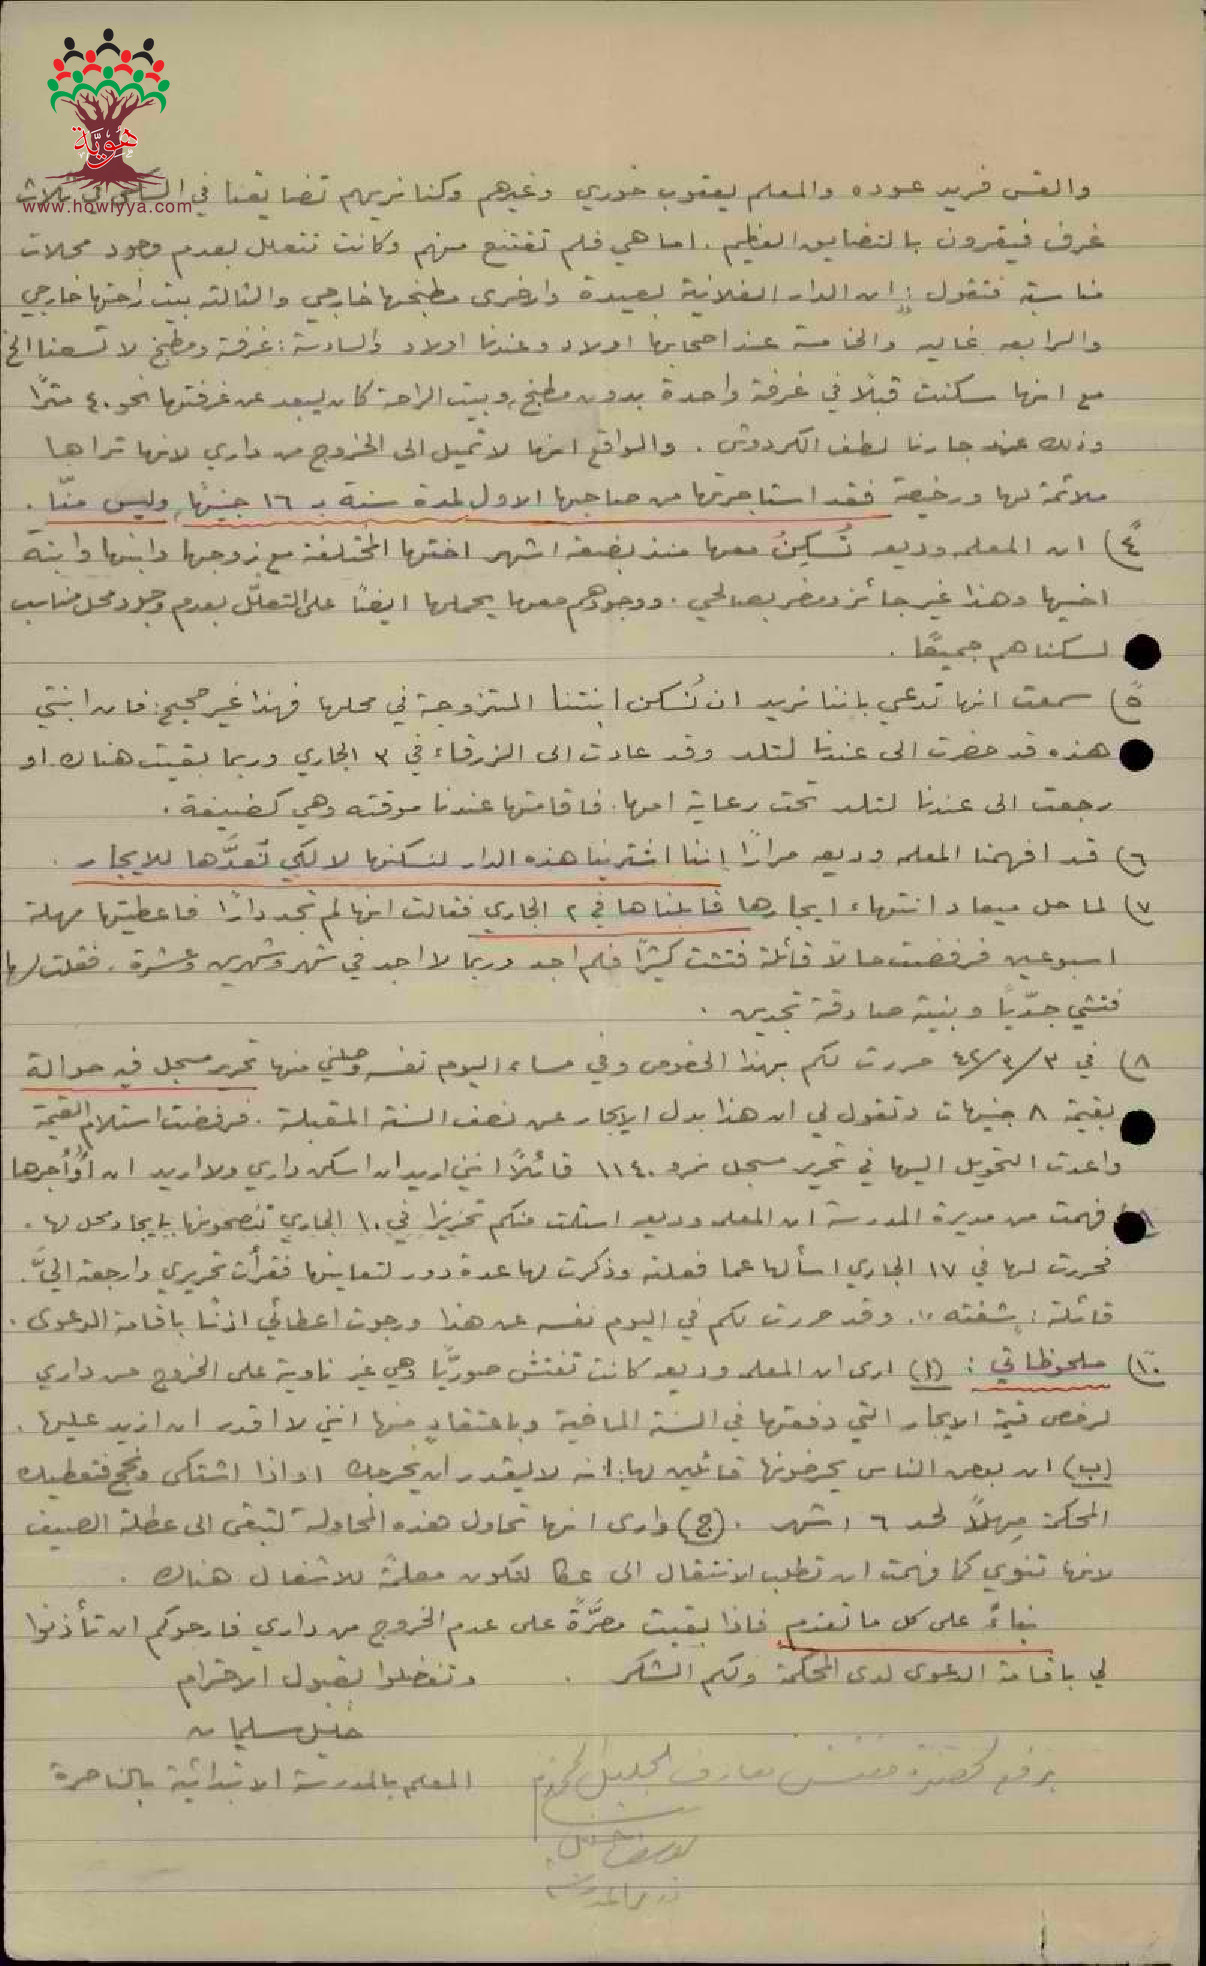 هُوِيَّة
www.howiyya.com
والقس فريد عوده والمعلم يعقوب خوري وغيرهم وكنا نريهم تضايقنا في السكن في ثلاث
غرف فيقرون بالتضايق العظيم. اما هي فلم تقتنع منهم وكانت تتعلل بعدم وجود محلات
مناسبة فتقول: ان الدار الفلانية بعيدة والاخرى مطبخها خارجي والثالثه بيت راحتها خارجي
والرابعه غاليه والخامسة عند اصحابها اولاد وعندنا اولاد والسادسة: غرفة ومطبخ لا تسعنا الخ
مع انها سكنت قبلاً في غرفة واحدة بدون مطبخ، وبيت الراحة كان يبعد عن غرفتها نحو ٤٠ مترًا
وذلك عند جارنا لطف الكردوش. والواقع انها لا تميل الى الخروج من داري لانها تراها
ملائمة لها ورخيصة فقد استاجرتها من صاحبها الاول لمدة سنة بـ ١٦ جنيهًا، وليس منّا.
٤) ان المعلمه وديعه تُسكِنُ معها منذ بضعة اشهر اختها المختلفة مع زوجها وابنها وابنة
اخيها وهذا غير جائز ومضر بصالحي. ووجودهم معها يحملها ايضًا على التعلّل بعدم وجود محل مناسب
لسكناهم جميعًا.
٥) سمعت انها تدعي باننا نريد ان نُسكن ابنتنا المتزوجة في محلها فهذا غير صحيح: فان ابنتي
هذه قد حضرت الى عندنا لتلد وقد عادت الى الزرقاء في ٣ الجاري وربما بقيت هناك او
رجعت الى عندنا لتلد تحت رعاية امها. فاقامتها عندنا موقته وهي كضيفة.
٦) قد افهمنا المعلمه وديعه مرارًا اننا اشترينا هذه الدار لنسكنها لا لكي نعدَّها للايجار.
٧) لما حل ميعاد انتهاء ايجارها قابلناها في ٢ الجاري فقالت انها لم تجد دارًا فاعطيتها مهلة
اسبوعين فرفضت حالاً قائلة فتشت كثيرًا فلم اجد وربما لا اجد في شهر وشهرين وعشرة. فقلت لها
فتشي جدّيًا وبنية صادقة تجدين.
٨) في ٣/٣/٤٢ حررت لكم بهذا الخصوص وفي مساء اليوم نفسه وصلني منها تحرير مسجل فيه حوالة
بقيمة ٨ جنيهات وتقول لي ان هذا بدل الايجار عن نصف السنة المقبلة. فرفضت استلام القيمة
واعدت التحويل اليها في تحرير مسجل نمره ١١٤٠ قائلاً انني اريد ان اسكن داري ولا اريد ان أؤجرها
فهمت من مديرة المدرسة ان المعلمه وديعه استلمت منكم تحريرًا في ١٠ الجاري تنصحونها بايجاد محل لها.
فحررت لها في ١٧ الجاري اسألها عما فعلته وذكرت لها عدة دور لتعاينها فقرأت تحريري وارجعته اليَّ
قائلة: "شفته". وقد حررت لكم في اليوم نفسه عن هذا ورجوت اعطائي اذنًا باقامة الدعوى.
١٠) ملحوظاتي: (ا) ارى ان المعلمه وديعه كانت تفتش صوريًّا وهي غير ناوية على الخروج من داري
لرخص قيمة الايجار التي دفعتها في السنة الماضية وباعتقادٍ منها انني لا اقدر ان ازيد عليها.
(ب) ان بعض الناس يحرضونها قائلين لها: انه لا يقدر ان يخرجك او اذا اشتكى ونجح فتعطيك
المحكمة مهلاً لحد ٦ اشهر. (ج) وارى انها تحاول هذه المحاولة لتبقى الى عطلة الصيف
لانها تنوي كما فهمت ان تطلب الانتقال الى عكا لتكون معلمة للاشغال هناك.
بناءً على كل ما تقدم فاذا بقيت مصرَّةً على عدم الخروج من داري فارجوكم ان تأذنوا
لي باقامة الدعوى لدى المحكمة ولكم الشكر. وتفضلوا بقبول الاحترام
خليل سليمان
المعلم بالمدرسة الابتدائية بالناصرة
يرفع لحضرة مفتش معارف الجليل المحترم